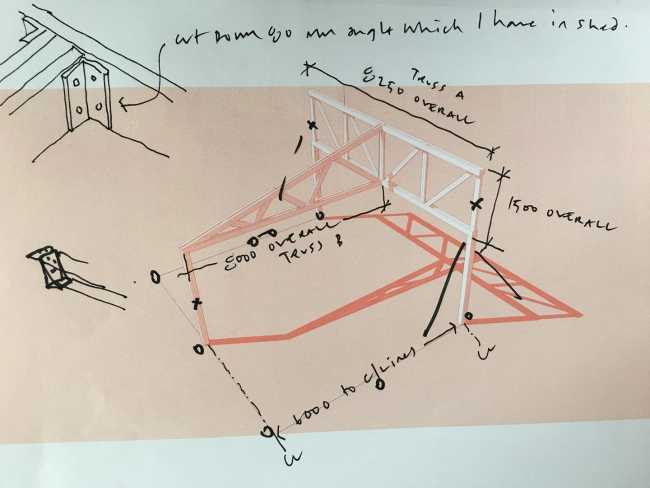 cut down 90 mm angle which I have in shed.
8250 OVERALL
TRUSS A
1500 OVERALL
8000 OVERALL
TRUSS B
6000 to c/lines